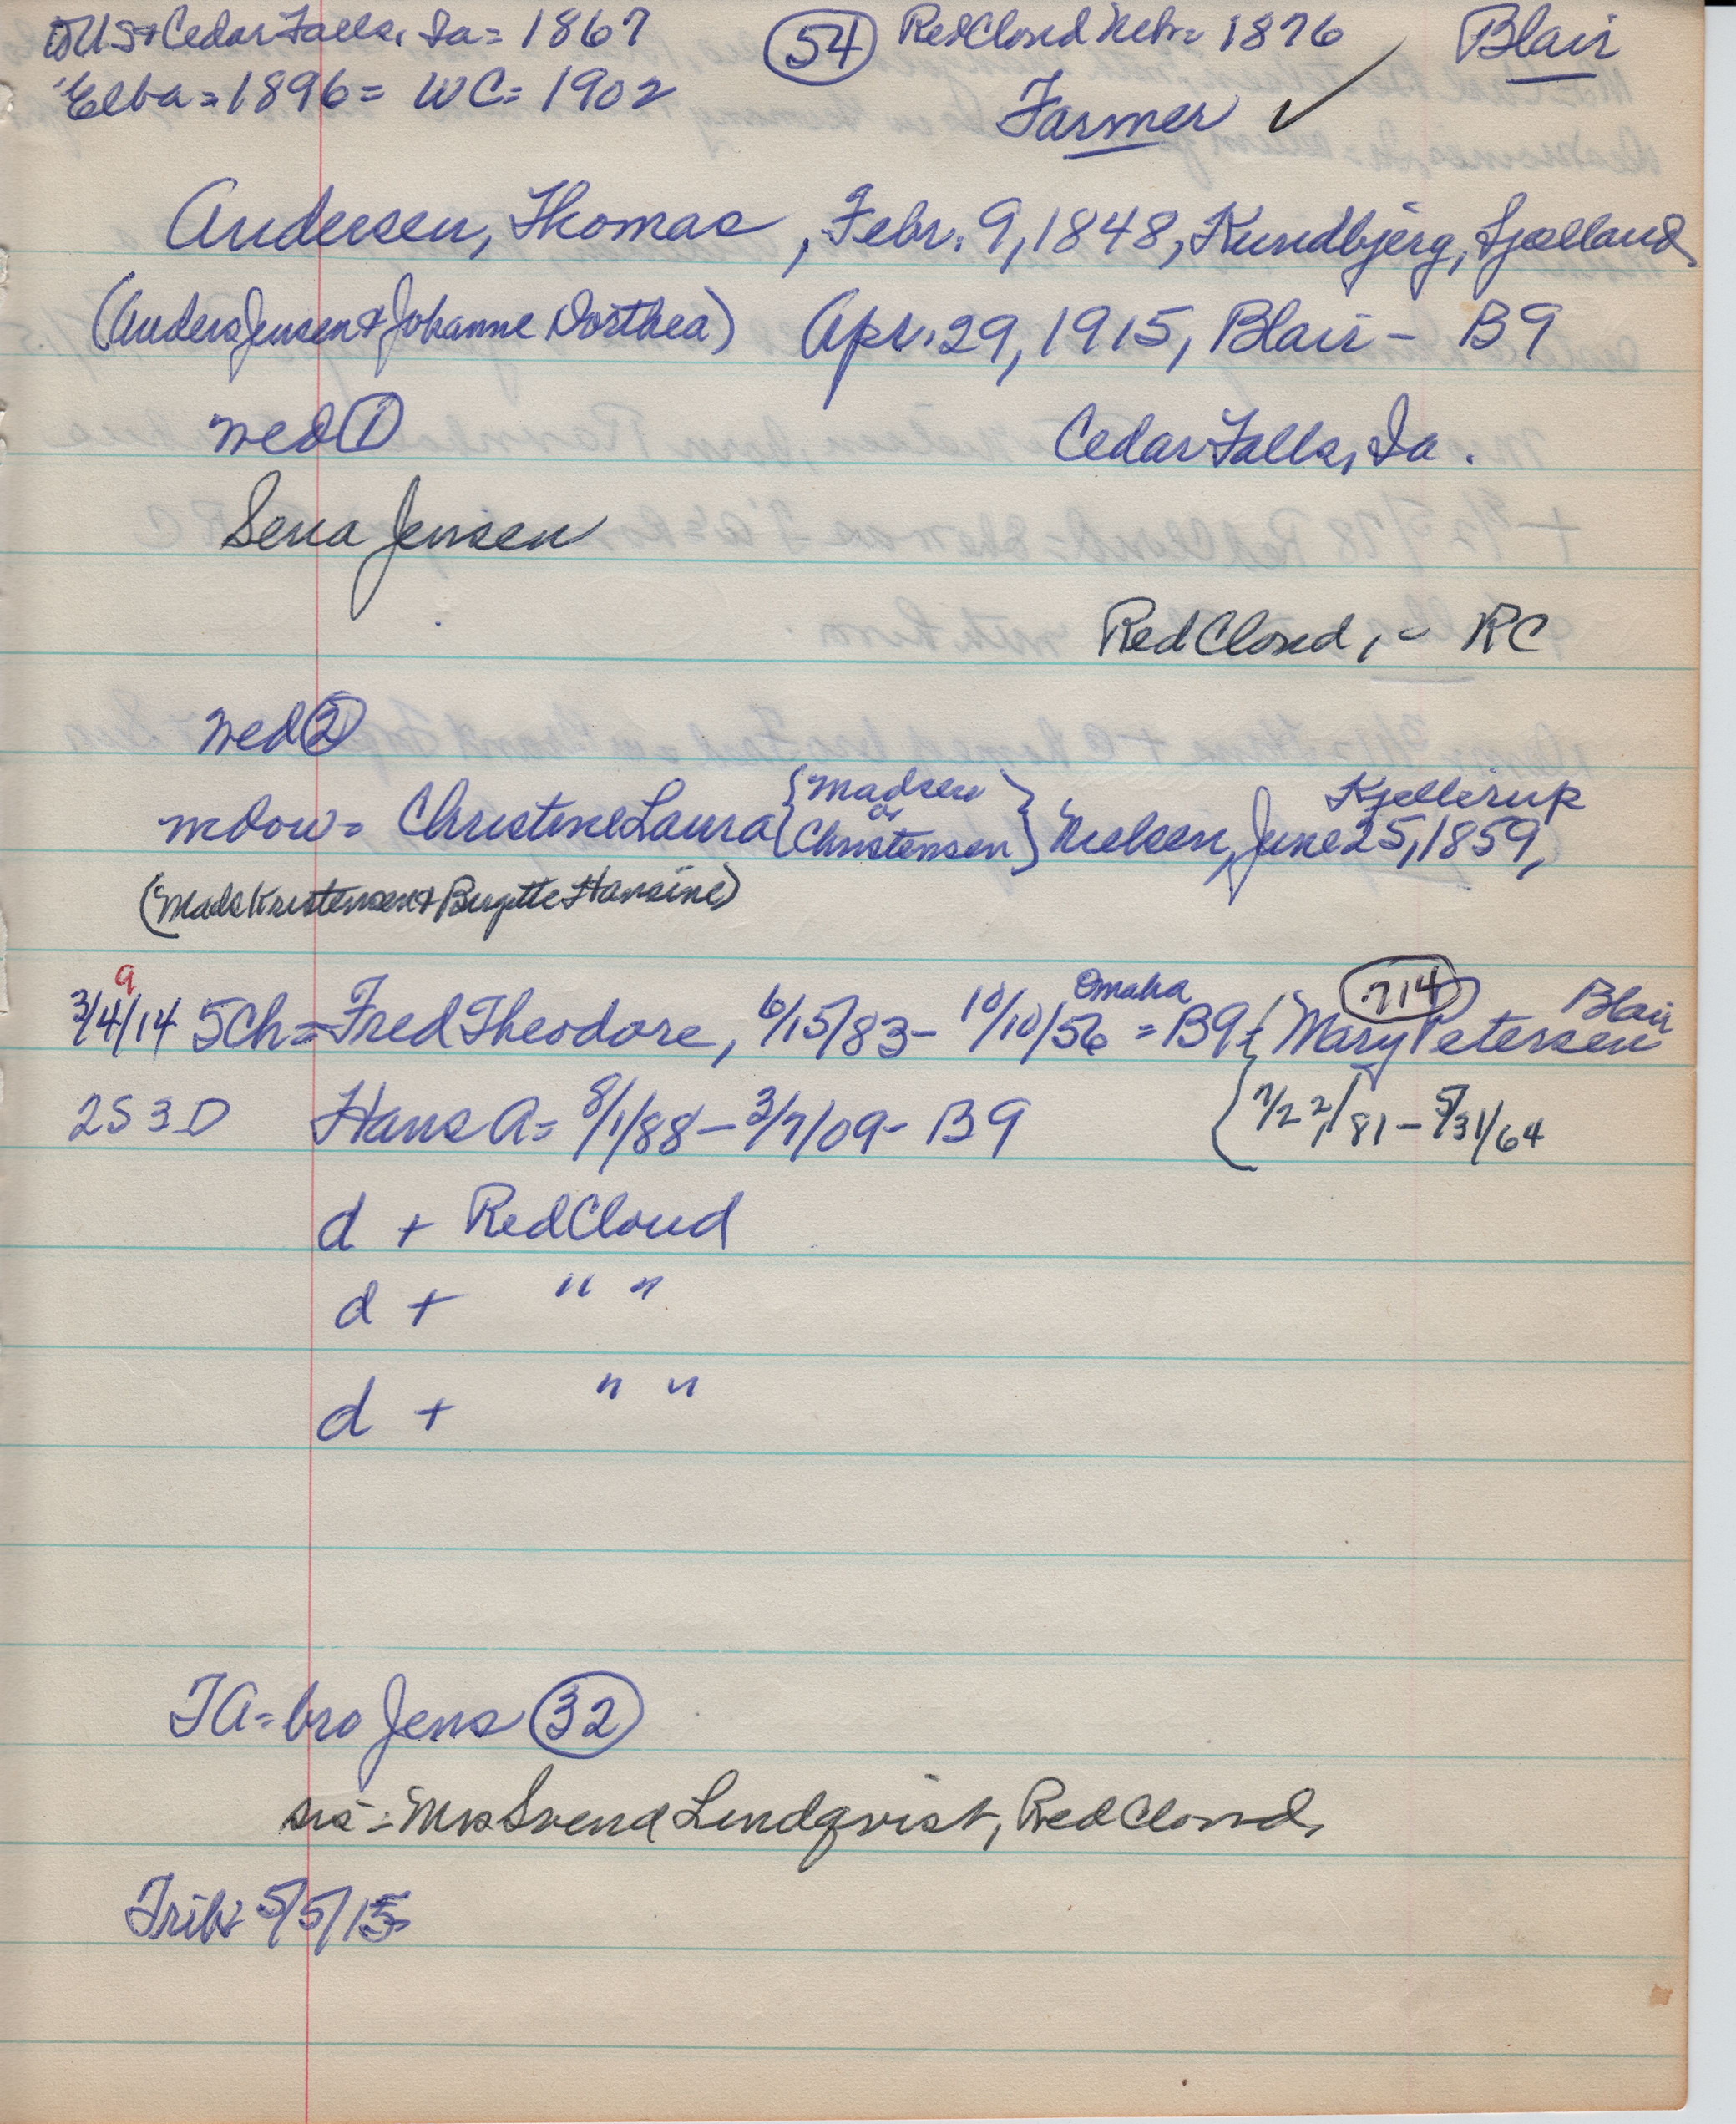 to US & Cedar Falls, Ia = 1867 (54) Red Cloud Nebr = 1876 Blair
Elba = 1896 = WC = 1902 Farmer ✓
Andersen, Thomas, Febr. 9, 1848, Kundbjerg, Sjælland
(Anders Jensen & Johanne Dorthea) Apr. 29, 1915, Blair - B9
wed (1) Cedar Falls, Ia.
Sena Jensen
Red Cloud, - RC
wed (2)
wdow = Christine Laura { Madsen or Christensen } Nielsen, June 25, 1859, Kjellerup
(Mads Kristensen & Birgitte Hansine)
9
3/4/14 5Ch = Fred Theodore, 6/15/83 - 10/10/56 Omaha = B9 { Mary Petersen (714) Blair
2S 3D Hans A = 8/1/88 - 3/7/09 - B9 { 7/22/81 - 5/31/64
d + Red Cloud
d + " "
d + " "
TA = bro Jens (32)
sis = Mrs Svend Lindqvist, Red Cloud,
Trib 5/5/15